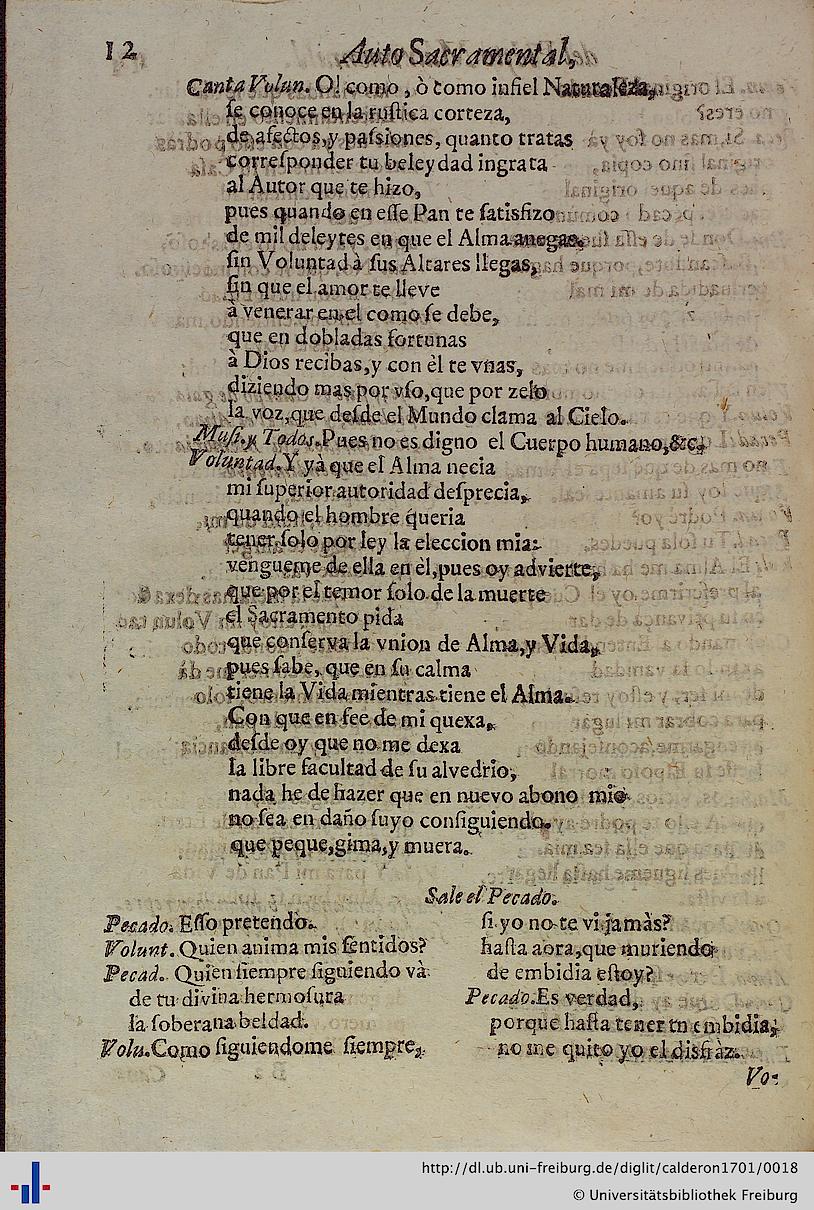 12
Auto Sacramental,
Canta Volun. O! como, ò como infiel Naturaleza,
ſe conoce en la ruſtica corteza,
de afectos, y paſsiones, quanto tratas
correſponder tu beleydad ingrata
al Autor que te hizo,
pues quando en eſſe Pan te ſatisfizo
de mil deleytes en que el Alma anegas,
ſin Voluntad à ſus Altares llegas,
ſin que el amor te lleve
à venerar en el como ſe debe,
que en dobladas fortunas
à Dios recibas, y con èl te vnas,
diziendo mas por vſo, que por zelo
la voz, que deſde el Mundo clama al Cielo.
Muſi. y Todos. Pues no es digno el Cuerpo humano, &c.
Voluntad. Y yà que el Alma necia
mi ſuperior autoridad deſprecia,
quando el hombre queria
tener ſolo por ley la eleccion mia:
vengueme de ella en èl, pues oy advierte,
que por el temor ſolo de la muerte
el Sacramento pida
que conſerva la vnion de Alma, y Vida,
pues ſabe, que en ſu calma
tiene la Vida mientras tiene el Alma.
Con que en fee de mi quexa,
deſde oy que no me dexa
la libre facultad de ſu alvedrio,
nada he de hazer que en nuevo abono mio
no ſea en daño ſuyo conſiguiendo,
que peque, gima, y muera.
Sale el Pecado.
Pecado. Eſſo pretendo.
Volunt. Quien anima mis ſentidos?
Pecad. Quien ſiempre ſiguiendo và
de tu divina hermoſura
la ſoberana beldad.
Volu. Como ſiguiendome ſiempre,
ſi yo no te vi jamàs?
haſta aora, que muriendo
de embidia eſtoy?
Pecado. Es verdad,
porque haſta tener tu embidia,
no me quito yo el disfràz.
Vo-
http://dl.ub.uni-freiburg.de/diglit/calderon1701/0018
© Universitätsbibliothek Freiburg